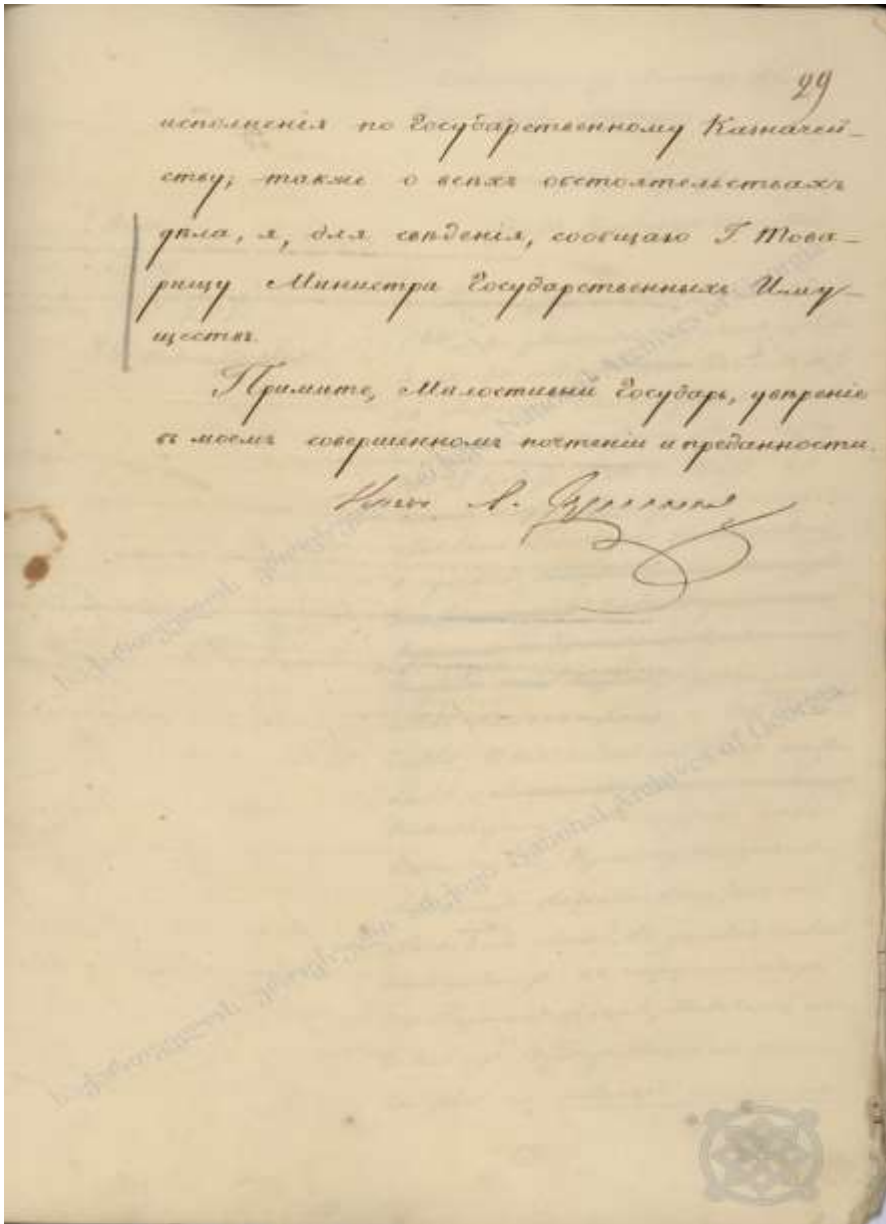 29
исполненія по Государственному Казначей-
ству; также о всѣхъ обстоятельствахъ
дѣла, я, для свѣдѣнія, сообщаю Г. Това-
рищу Министра Государственныхъ Иму-
ществъ.
Примите, Милостивый Государь, увѣреніе
въ моемъ совершенномъ почтеніи и преданности.
National Archives of Georgia
National Archives of Georgia